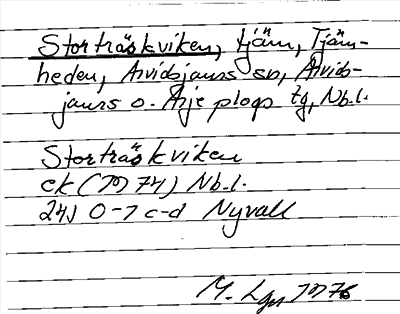 Storträskviken, tjärn, Tjärn-
heden, Arvidsjaurs sn, Arvids-
jaurs o. Arjeplogs tg, Nb.l.
Storträskviken
ek (1974) Nb.l.
24J 0-7 c-d Nyvall
M. Lgn 1976